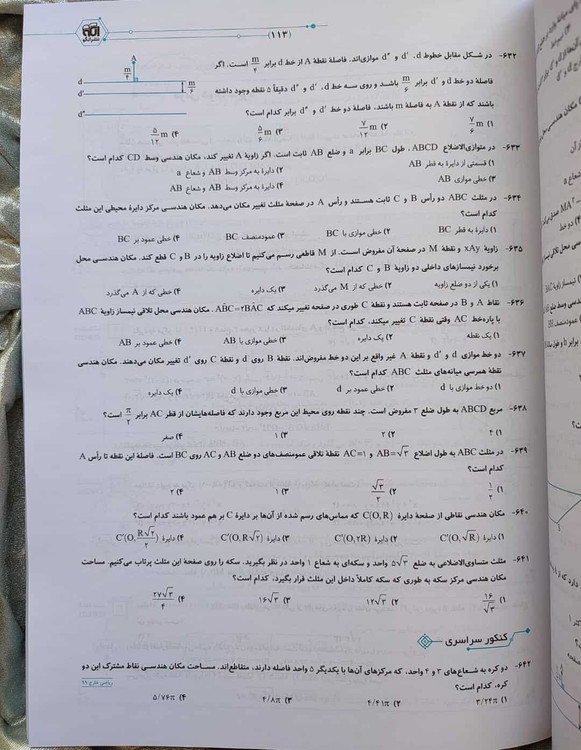 (۱۱۳)
۶۳۲- در شکل مقابل خطوط d، d′ و d″ موازی‌اند. فاصلهٔ نقطهٔ A از خط d برابر m/۴ است. اگر
فاصلهٔ دو خط d و d′ برابر m/۶ باشد و روی سه خط d، d′ و d″ دقیقاً ۵ نقطه وجود داشته
باشند که از نقطهٔ A به فاصلهٔ m باشند، فاصلهٔ دو خط d′ و d″ برابر کدام است؟
A
m/۴
d
m/۶
d′
d″
۱) ۷/۶ m ۲) ۷/۱۲ m ۳) ۵/۶ m ۴) ۵/۱۲ m
۶۳۳- در متوازی‌الاضلاع ABCD، طول BC برابر a و ضلع AB ثابت است. اگر زاویهٔ A تغییر کند، مکان هندسی وسط CD کدام است؟
۱) قسمتی از دایرهٔ به قطر AB ۲) دایرهٔ به مرکز وسط AB و شعاع a
۳) خطی موازی AB ۴) دایرهٔ به مرکز وسط AB و شعاع AB
۶۳۴- در مثلث ABC دو رأس B و C ثابت هستند و رأس A در صفحهٔ مثلث تغییر مکان می‌دهد. مکان هندسی مرکز دایرهٔ محیطی این مثلث
کدام است؟
۱) دایرهٔ به قطر BC ۲) خطی موازی با BC ۳) عمودمنصف BC ۴) خطی عمود بر BC
۶۳۵- زاویهٔ xAy و نقطهٔ M در صفحهٔ آن مفروض است. از M قاطعی رسم می‌کنیم تا اضلاع زاویه را در B و C قطع کند. مکان هندسی محل
برخورد نیمسازهای داخلی دو زاویهٔ B و C کدام است؟
۱) یکی از دو ضلع زاویه ۲) خطی که از M می‌گذرد ۳) یک دایره ۴) خطی که از A می‌گذرد
۶۳۶- نقاط A و B در صفحه ثابت هستند و نقطهٔ C طوری در صفحه تغییر میکند که AB̂C=۲BÂC. مکان هندسی محل تلاقی نیمساز زاویهٔ ABC
با پاره‌خط AC وقتی نقطهٔ C تغییر میکند، کدام است؟
۱) یک نقطه ۲) یک دایره ۳) خطی موازی با AB ۴) خطی عمود بر AB
۶۳۷- دو خط موازی d و d′ و نقطهٔ A غیر واقع بر این دو خط مفروض‌اند. نقطهٔ B روی d و نقطهٔ C روی d′ تغییر مکان می‌دهند. مکان هندسی
نقطهٔ همرسی میانه‌های مثلث ABC کدام است؟
۱) دو خط موازی با d ۲) خطی عمود بر d ۳) خطی موازی با d ۴) یک دایره
۶۳۸- مربع ABCD به طول ضلع ۳ مفروض است. چند نقطه روی محیط این مربع وجود دارند که فاصله‌هایشان از قطر AC برابر π/۲ است؟
۱) ۴ ۲) ۲ ۳) ۱ ۴) صفر
۶۳۹- در مثلث ABC به طول اضلاع AB=√۳ و AC=۱ نقطهٔ تلاقی عمودمنصف‌های دو ضلع AB و AC روی BC است. فاصلهٔ این نقطه تا رأس A
کدام است؟
۱) ۱/۲ ۲) √۳/۲ ۳) ۱ ۴) ۲
۶۴۰- مکان هندسی نقاطی از صفحهٔ دایرهٔ C(O,R) که مماس‌های رسم شده از آن‌ها بر دایرهٔ C بر هم عمود باشند کدام است؟
۱) دایرهٔ C′(O,√R) ۲) دایرهٔ C′(O,۲R) ۳) دایرهٔ C′(O,R√۲) ۴) دایرهٔ C′(O,R√۲/۲)
۶۴۱- مثلث متساوی‌الاضلاعی به ضلع ۵√۳ واحد و سکه‌ای به شعاع ۱ واحد در نظر بگیرید. سکه را روی صفحهٔ این مثلث پرتاب می‌کنیم. مساحت
مکان هندسی مرکز سکه به طوری که سکه کاملاً داخل این مثلث قرار بگیرد، کدام است؟
۱) ۱۶/√۳ ۲) ۱۲√۳ ۳) ۱۶√۳ ۴) ۲۷√۳/۴
کنکور سراسری
۶۴۲- دو کره به شعاع‌های ۳ و ۴ واحد، که مرکزهای آن‌ها با یکدیگر ۵ واحد فاصله دارند، متقاطع‌اند. مساحت مکان هندسی نقاط مشترک این دو
کره، کدام است؟
ریاضی خارج ۹۹
۱) ۳/۲۴π ۲) ۴/۴۱π ۳) ۴/۸π ۴) ۵/۷۶π